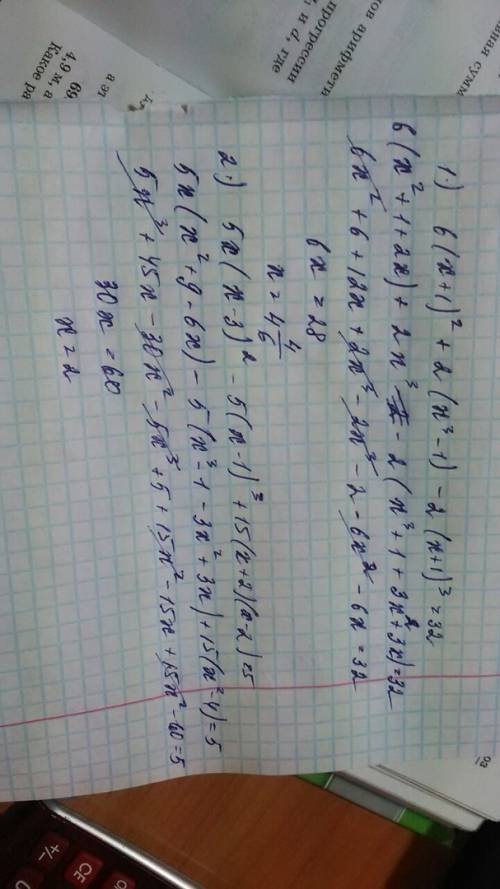 1.) 6(x+1)² + 2(x³-1) - 2(x+1)³ = 32
6(x²+1+2x) + 2x³ - 2 - 2(x³+1+3x²+3x) = 32
6x² + 6 + 12x + 2x³ - 2x³ - 2 - 6x² - 6x = 32
6x = 28
x = 4 4/6
2.) 5x(x-3)² - 5(x-1)³ + 15(x+2)(x-2) = 5
5x(x²+9-6x) - 5(x³-1-3x²+3x) + 15(x²-4) = 5
5x³ + 45x - 30x² - 5x³ + 5 + 15x² - 15x + 15x² - 60 = 5
30x = 60
x = 2
ов арифмети
прогрессии
и d, где
69
4,9 м, а
Какое ра
а эт
+/-
CE